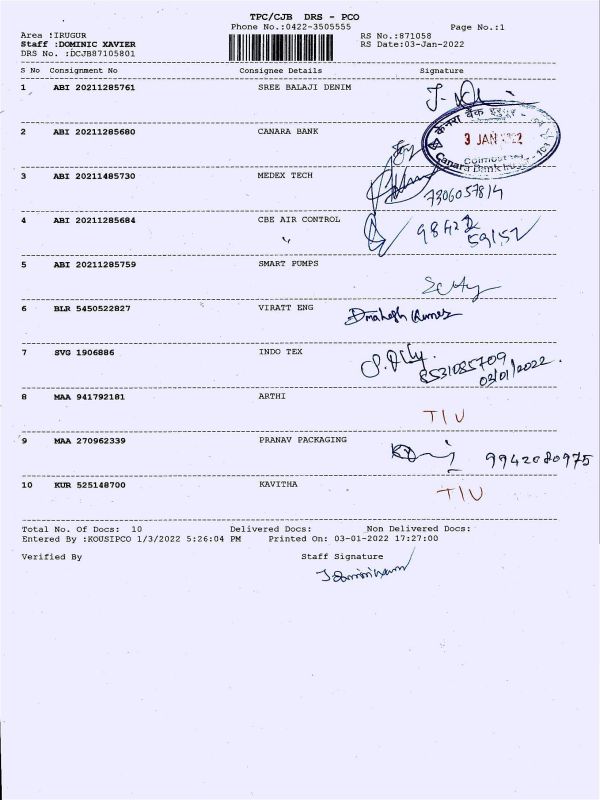 TPC/CJB DRS - PCO
Phone No.:0422-3505555 Page No.:1
Area :IRUGUR RS No.:871058
Staff :DOMINIC XAVIER RS Date:03-Jan-2022
DRS No. :DCJB87105801
S No Consignment No Consignee Details Signature
1 ABI 20211285761 SREE BALAJI DENIM
2 ABI 20211285680 CANARA BANK
केनरा बैंक
3 JAN
Canara Bank
3 ABI 20211485730 MEDEX TECH
7306057814
4 ABI 20211285684 CBE AIR CONTROL
5 ABI 20211285759 SMART PUMPS
6 BLR 5450522827 VIRATT ENG
7 SVG 1906886 INDO TEX
8531085709
03/01/2022.
8 MAA 941792181 ARTHI
TIU
9 MAA 270962339 PRANAV PACKAGING
9942080975
10 KUR 525148700 KAVITHA
TIU
Total No. Of Docs: 10 Delivered Docs: Non Delivered Docs:
Entered By :KOUSIPCO 1/3/2022 5:26:04 PM Printed On: 03-01-2022 17:27:00
Verified By Staff Signature